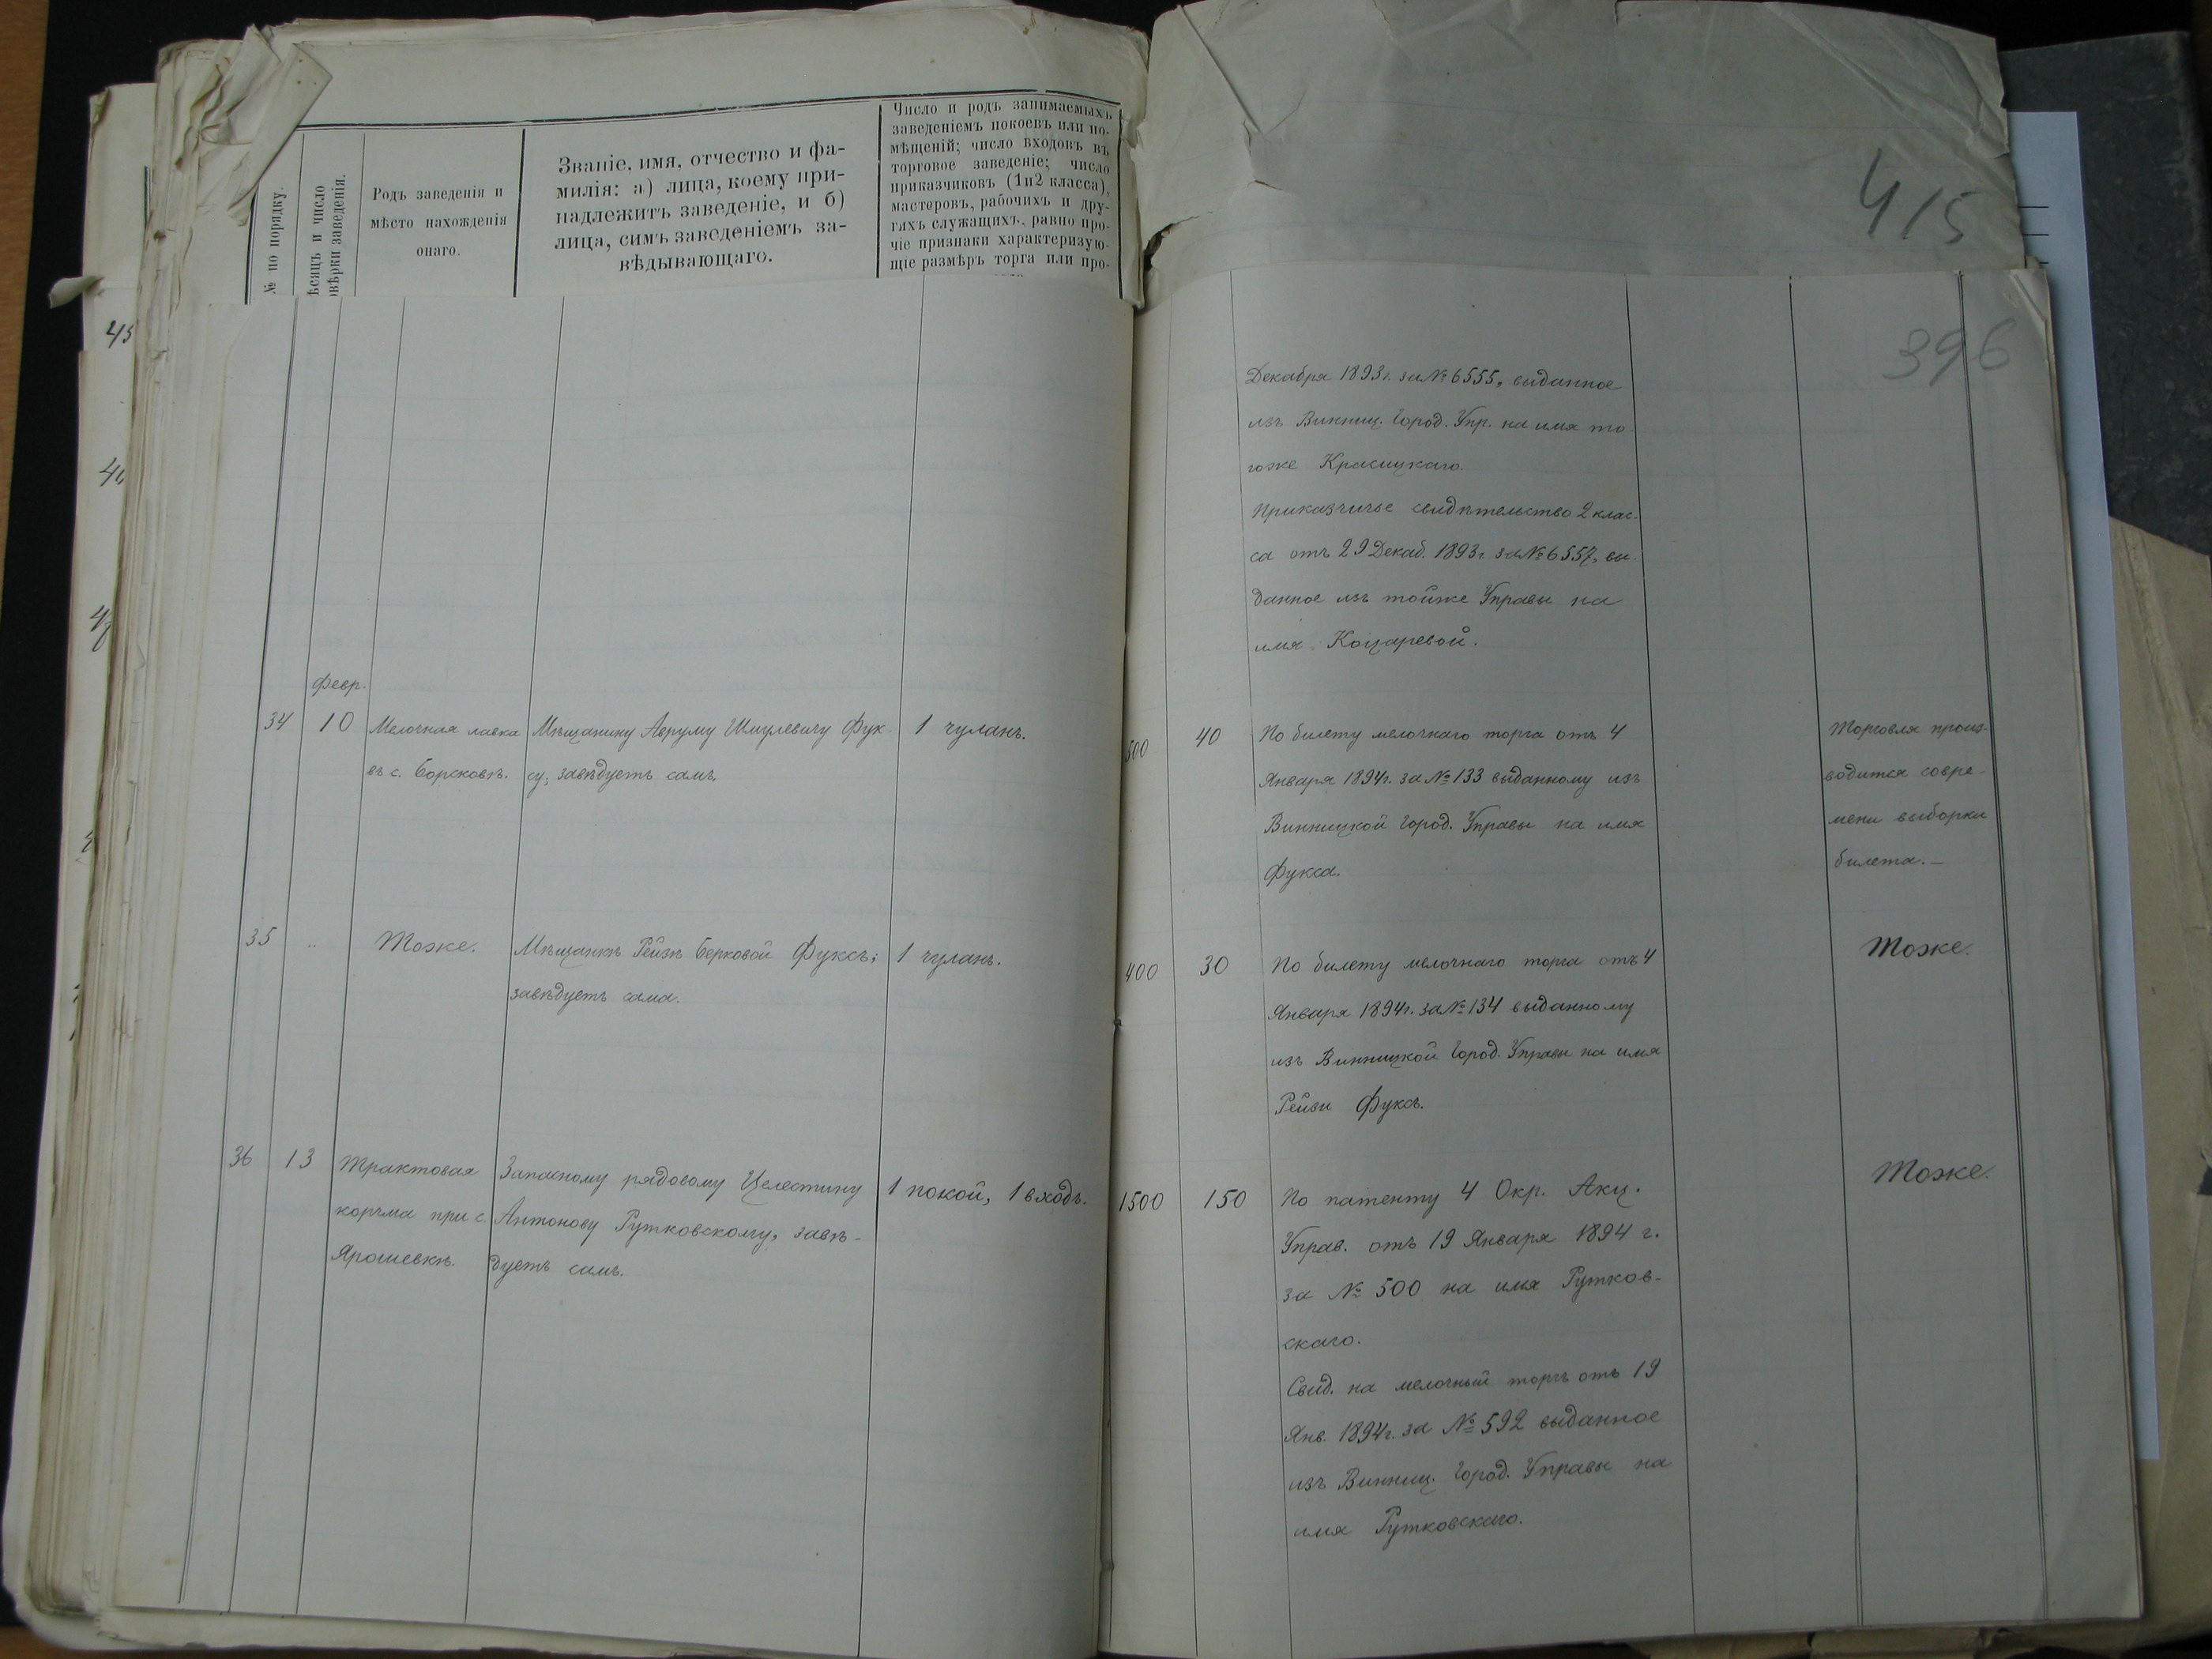 № по порядку.
ѣсяцъ и число
овѣрки заведенія.
Родъ заведенія и
мѣсто нахожденія
онаго.
Званіе, имя, отчество и фа-
милія: а) лица, коему при-
надлежитъ заведеніе, и б)
лица, симъ заведеніемъ за-
вѣдывающаго.
Число и родъ занимаемыхъ
заведеніемъ покоевъ или по-
мѣщеній; число входовъ въ
торговое заведеніе; число
приказчиковъ (1 и 2 класса),
мастеровъ, рабочихъ и дру-
гихъ служащихъ, равно про-
чіе признаки характеризую-
щіе размѣръ торга или про-
415
396
45
Декабря 1893 г. за № 6555, выданное
изъ Винниц. Город. Упр. на имя то-
гоже Красицкаго.
Приказчичье свидѣтельство 2 клас-
са отъ 29 Декаб. 1893 г. за № 6557, вы-
данное изъ тойже Управы на
имя Коцаревой.
Февр.
34 10 Мелочная лавка
въ с. Борсковѣ.
Мѣщанину Авруму Шмулевичу Фук-
су; завѣдуетъ самъ.
1 чуланъ.
500 40 По билету мелочнаго торга отъ 4
Января 1894 г. за № 133 выданному изъ
Винницкой Город. Управы на имя
Фукса.
Торговля произ-
водится совре-
мени выборки
билета. –
35 " Тоже.
Мѣщанкѣ Рейзѣ Берковой Фуксъ;
завѣдуетъ сама.
1 чуланъ.
400 30 По билету мелочнаго торга отъ 4
Января 1894 г. за № 134 выданному
изъ Винницкой Город. Управы на имя
Рейзи Фуксъ.
Тоже.
36 13 Трактовая
корчма при с.
Ярошевкѣ.
Запасному рядовому Целестину
Антонову Рутковскому, завѣ-
дуетъ самъ.
1 покой, 1 входъ.
1500 150 По патенту 4 Окр. Акц.
Управ. отъ 19 Января 1894 г.
за № 500 на имя Рутков-
скаго.
Свид. на мелочный торгъ отъ 19
Янв. 1894 г. за № 592 выданное
изъ Винниц. Город. Управы на
имя Рутковскаго.
Тоже.